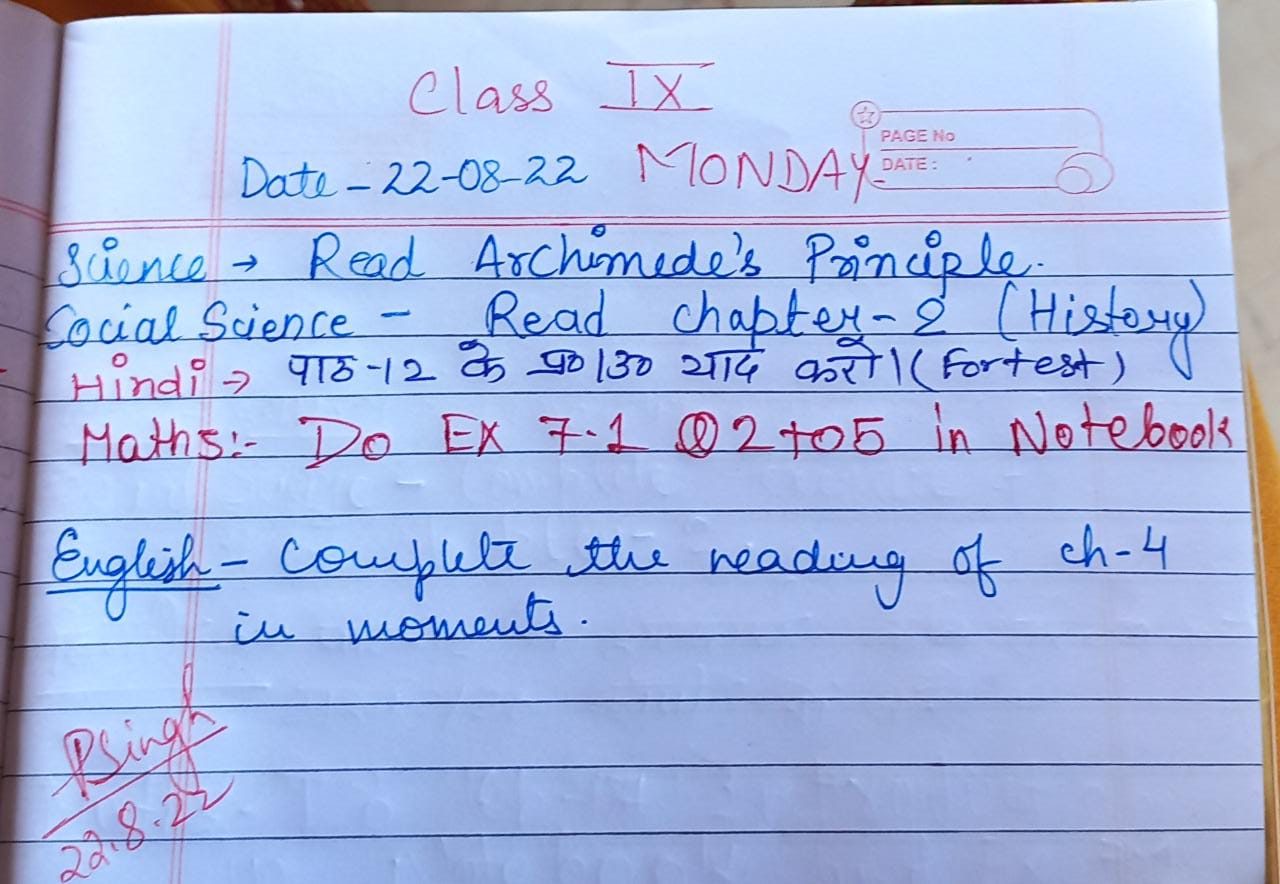 Class IX
PAGE No
Date - 22-08-22 MONDAY
DATE :
Science → Read Archimede's Principle.
Social Science - Read chapter-2 (History)
Hindi → पाठ-12 के प्र०।उ० याद करो। (For test)
Maths:- Do EX 7.1 Q 2 to 5 in Notebook
English - Complete the reading of ch-4
in moments.
PSingh
22.8.22